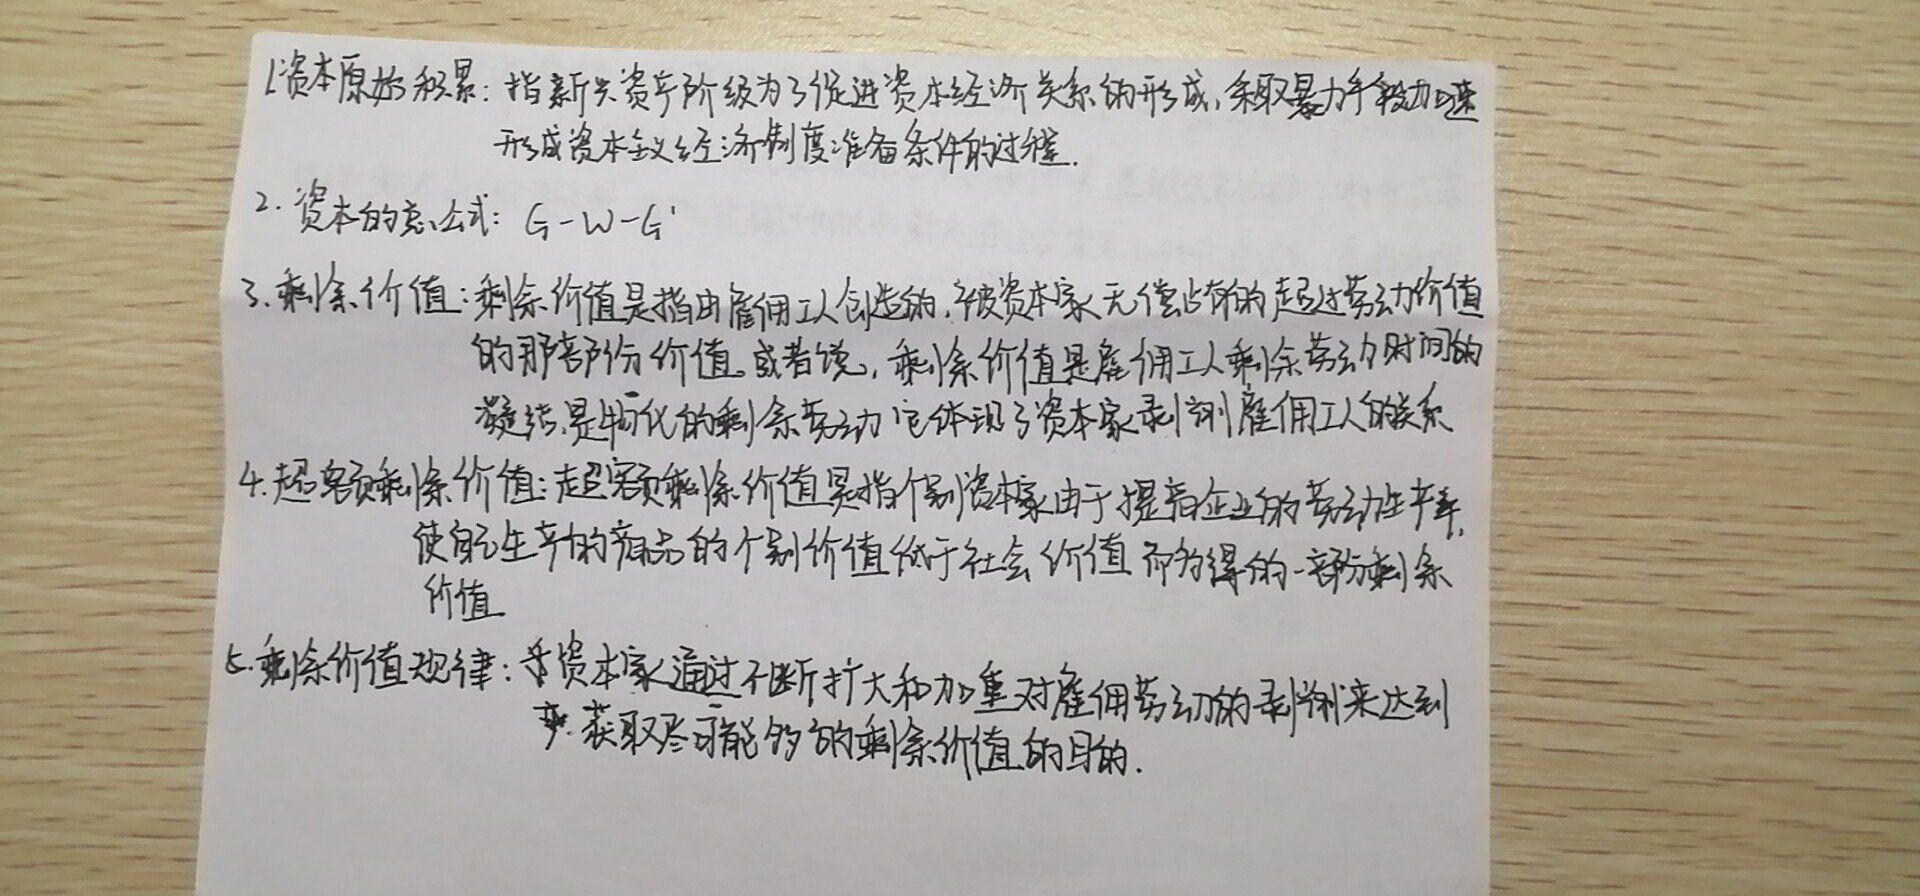 1.资本原始积累：指新兴资产阶级为了促进资本经济关系的形成，采取暴力手段加速
形成资本主义经济制度准备条件的过程.
2. 资本的总公式：G-W-G'
3.剩余价值：剩余价值是指由雇佣工人创造的，被资本家无偿占有的超过劳动价值
的那部份价值。或者说，剩余价值是雇佣工人剩余劳动时间的
凝结，是物化的剩余劳动 它体现了资本家剥削雇佣工人的关系
4.超额剩余价值：超额剩余价值是指个别资本家由于提高企业的劳动生产率，
使自己生产的商品的个别价值低于社会价值而多得的一部分剩余
价值
5.剩余价值规律：资本家通过不断扩大和加重对雇佣劳动的剥削来达到
获取尽可能多的剩余价值的目的.